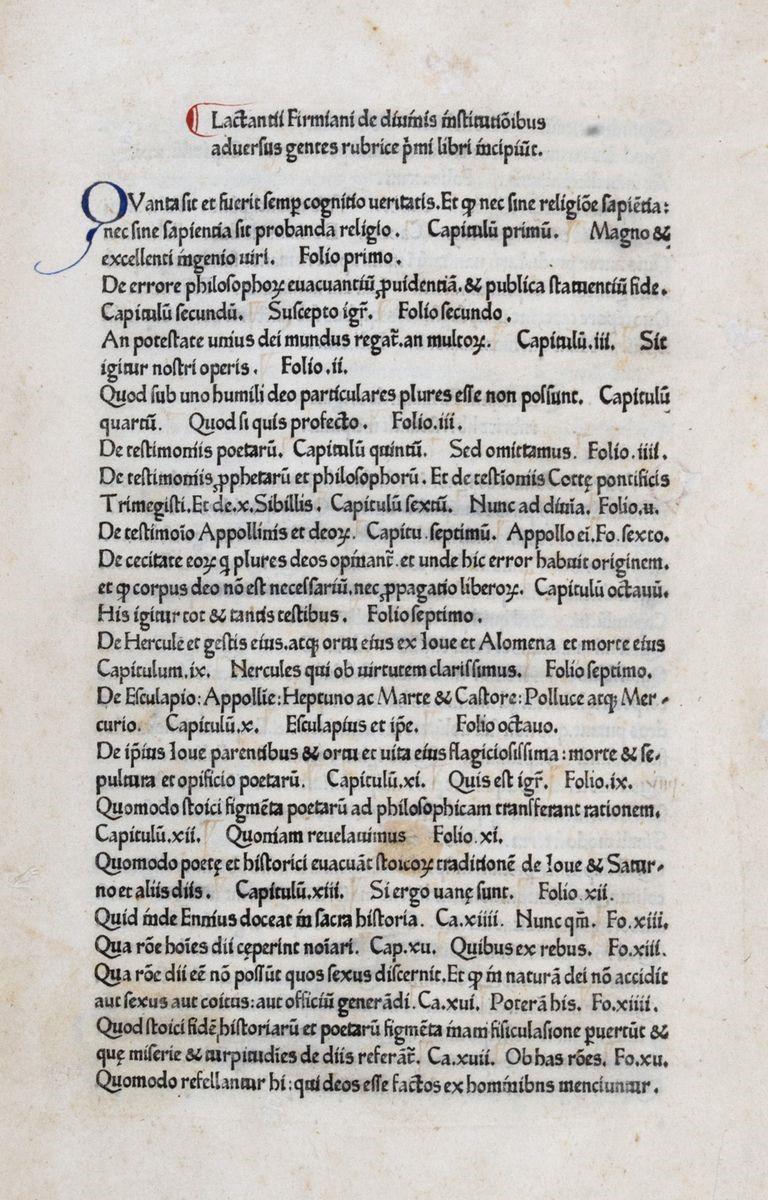 Lactantii Firmiani de diuinis institutiõibus
aduersus gentes rubrice p̃mi libri incipiũt.
QVanta sit et fuerit semp̲ cognitio ueritatis. Et ꝙ nec sine religiõe sapiẽtia:
nec sine sapientia sit probanda religio. Capitulũ primũ. Magno &
excellenti ingenio uiri. Folio primo.
De errore philosophoꝝ euacuantiũ ꝓuidentiã. & publica statuentiũ fide.
Capitulũ secundũ. Suscepto igr̃. Folio secundo.
An potestate unius dei mundus regat̃. an multoꝝ. Capitulũ. iii. Sit
igitur nostri operis. Folio. ii.
Quod sub uno humili deo particulares plures esse non possunt. Capitulũ
quartũ. Quod si quis profecto. Folio. iii.
De testimoniis poetarũ. Capitulũ quintũ. Sed omittamus. Folio. iiii.
De testimoniis ꝓphetarũ et philosophorũ. Et de testĩoniis Cottę pontificis
Trimegisti. Et de. x. Sibillis. Capitulũ sextũ. Nunc ad diuĩa. Folio. u.
De testimoĩo Appollinis et deoꝝ. Capitu. septimũ. Appollo ei. Fo. sexto.
De cecitate eoꝝ q̃ plures deos opinant̃. et unde hic error habuit originem.
et ꝙ corpus deo nõ est necessariũ. nec ꝓpagatio liberoꝝ. Capitulũ octauũ.
His igitur tot & tantis testibus. Folio septimo.
De Hercule et gestis eius. atqꝫ ortu eius ex Ioue et Alomena et morte eius
Capitulum. ix. Hercules qui ob uirtutem clarissimus. Folio septimo.
De Esculapio: Appollĩe: Heptuno ac Marte & Castore: Polluce atqꝫ Mer-
curio. Capitulũ. x. Esculapius et ip̃e. Folio octauo.
De ip̃ius Ioue parentibus & ortu et uita eius flagiciosissima: morte & se-
pultura et opificio poetarũ. Capitulũ. xi. Quis est igr̃. Folio. ix.
Quomodo stoici figmẽta poetarũ ad philosophicam transferant rationem.
Capitulũ. xii. Quoniam reuelauimus Folio. xi.
Quomodo poetę et historici euacuãt stoicoꝝ traditionẽ de Ioue & Satur-
no et aliis diis. Capitulũ. xiii. Si ergo uanę sunt. Folio. xii.
Quid inde Ennius doceat in sacra historia. Ca. xiiii. Nunc qm̃. Fo. xiii.
Qua rõe hoĩes dii cęperint noĩari. Cap. xu. Quibus ex rebus. Fo. xiii.
Qua rõe dii eẽ nõ possũt quos sexus discernit. Et ꝙ in naturã dei nõ accidit
aut sexus aut coitus: aut officiũ generãdi. Ca. xui. Poterã his. Fo. xiiii.
Quod stoici fidẽ historiarũ et poetarũ figmẽta inani fisiculasione p̲uertũt &
quę miserie & turpitudĩes de diis referãt̃. Ca. xuii. Ob has rões. Fo. xu.
Quomodo refellantur hi: qui deos esse factos ex hominibns menciuntur.